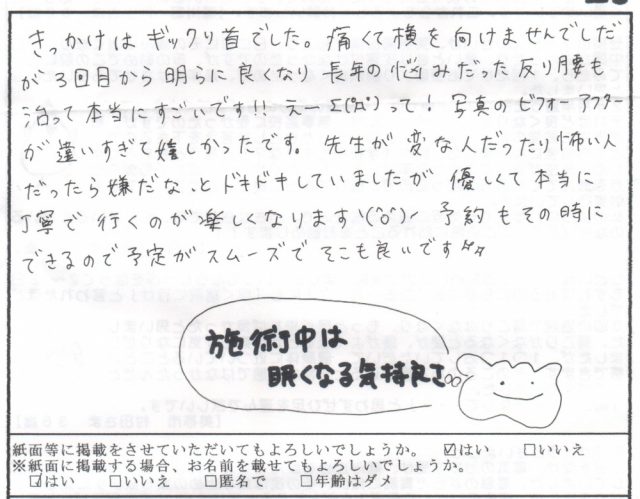 きっかけはギックリ首でした。痛くて横を向けませんでしだ
が3回目から明らに良くなり長年の悩みだった反り腰も
治って本当にすごいです!!えーΣ(゚Д゚)って!写真のビフォーアフター
が違いすぎて嬉しかったです。先生が変な人だったり怖い人
だったら嫌だな、とドキドキしていましたが優しくて本当に
丁寧で行くのが楽しくなります\(^o^)/予約もその時に
できるので予定がスムーズでそこも良いです
施術中は
眠くなる気持良さ
紙面等に掲載をさせていただいてもよろしいでしょうか。 ☑はい □いいえ
※紙面に掲載する場合、お名前を載せてもよろしいでしょうか。
☑はい □いいえ □匿名で □年齢はダメ